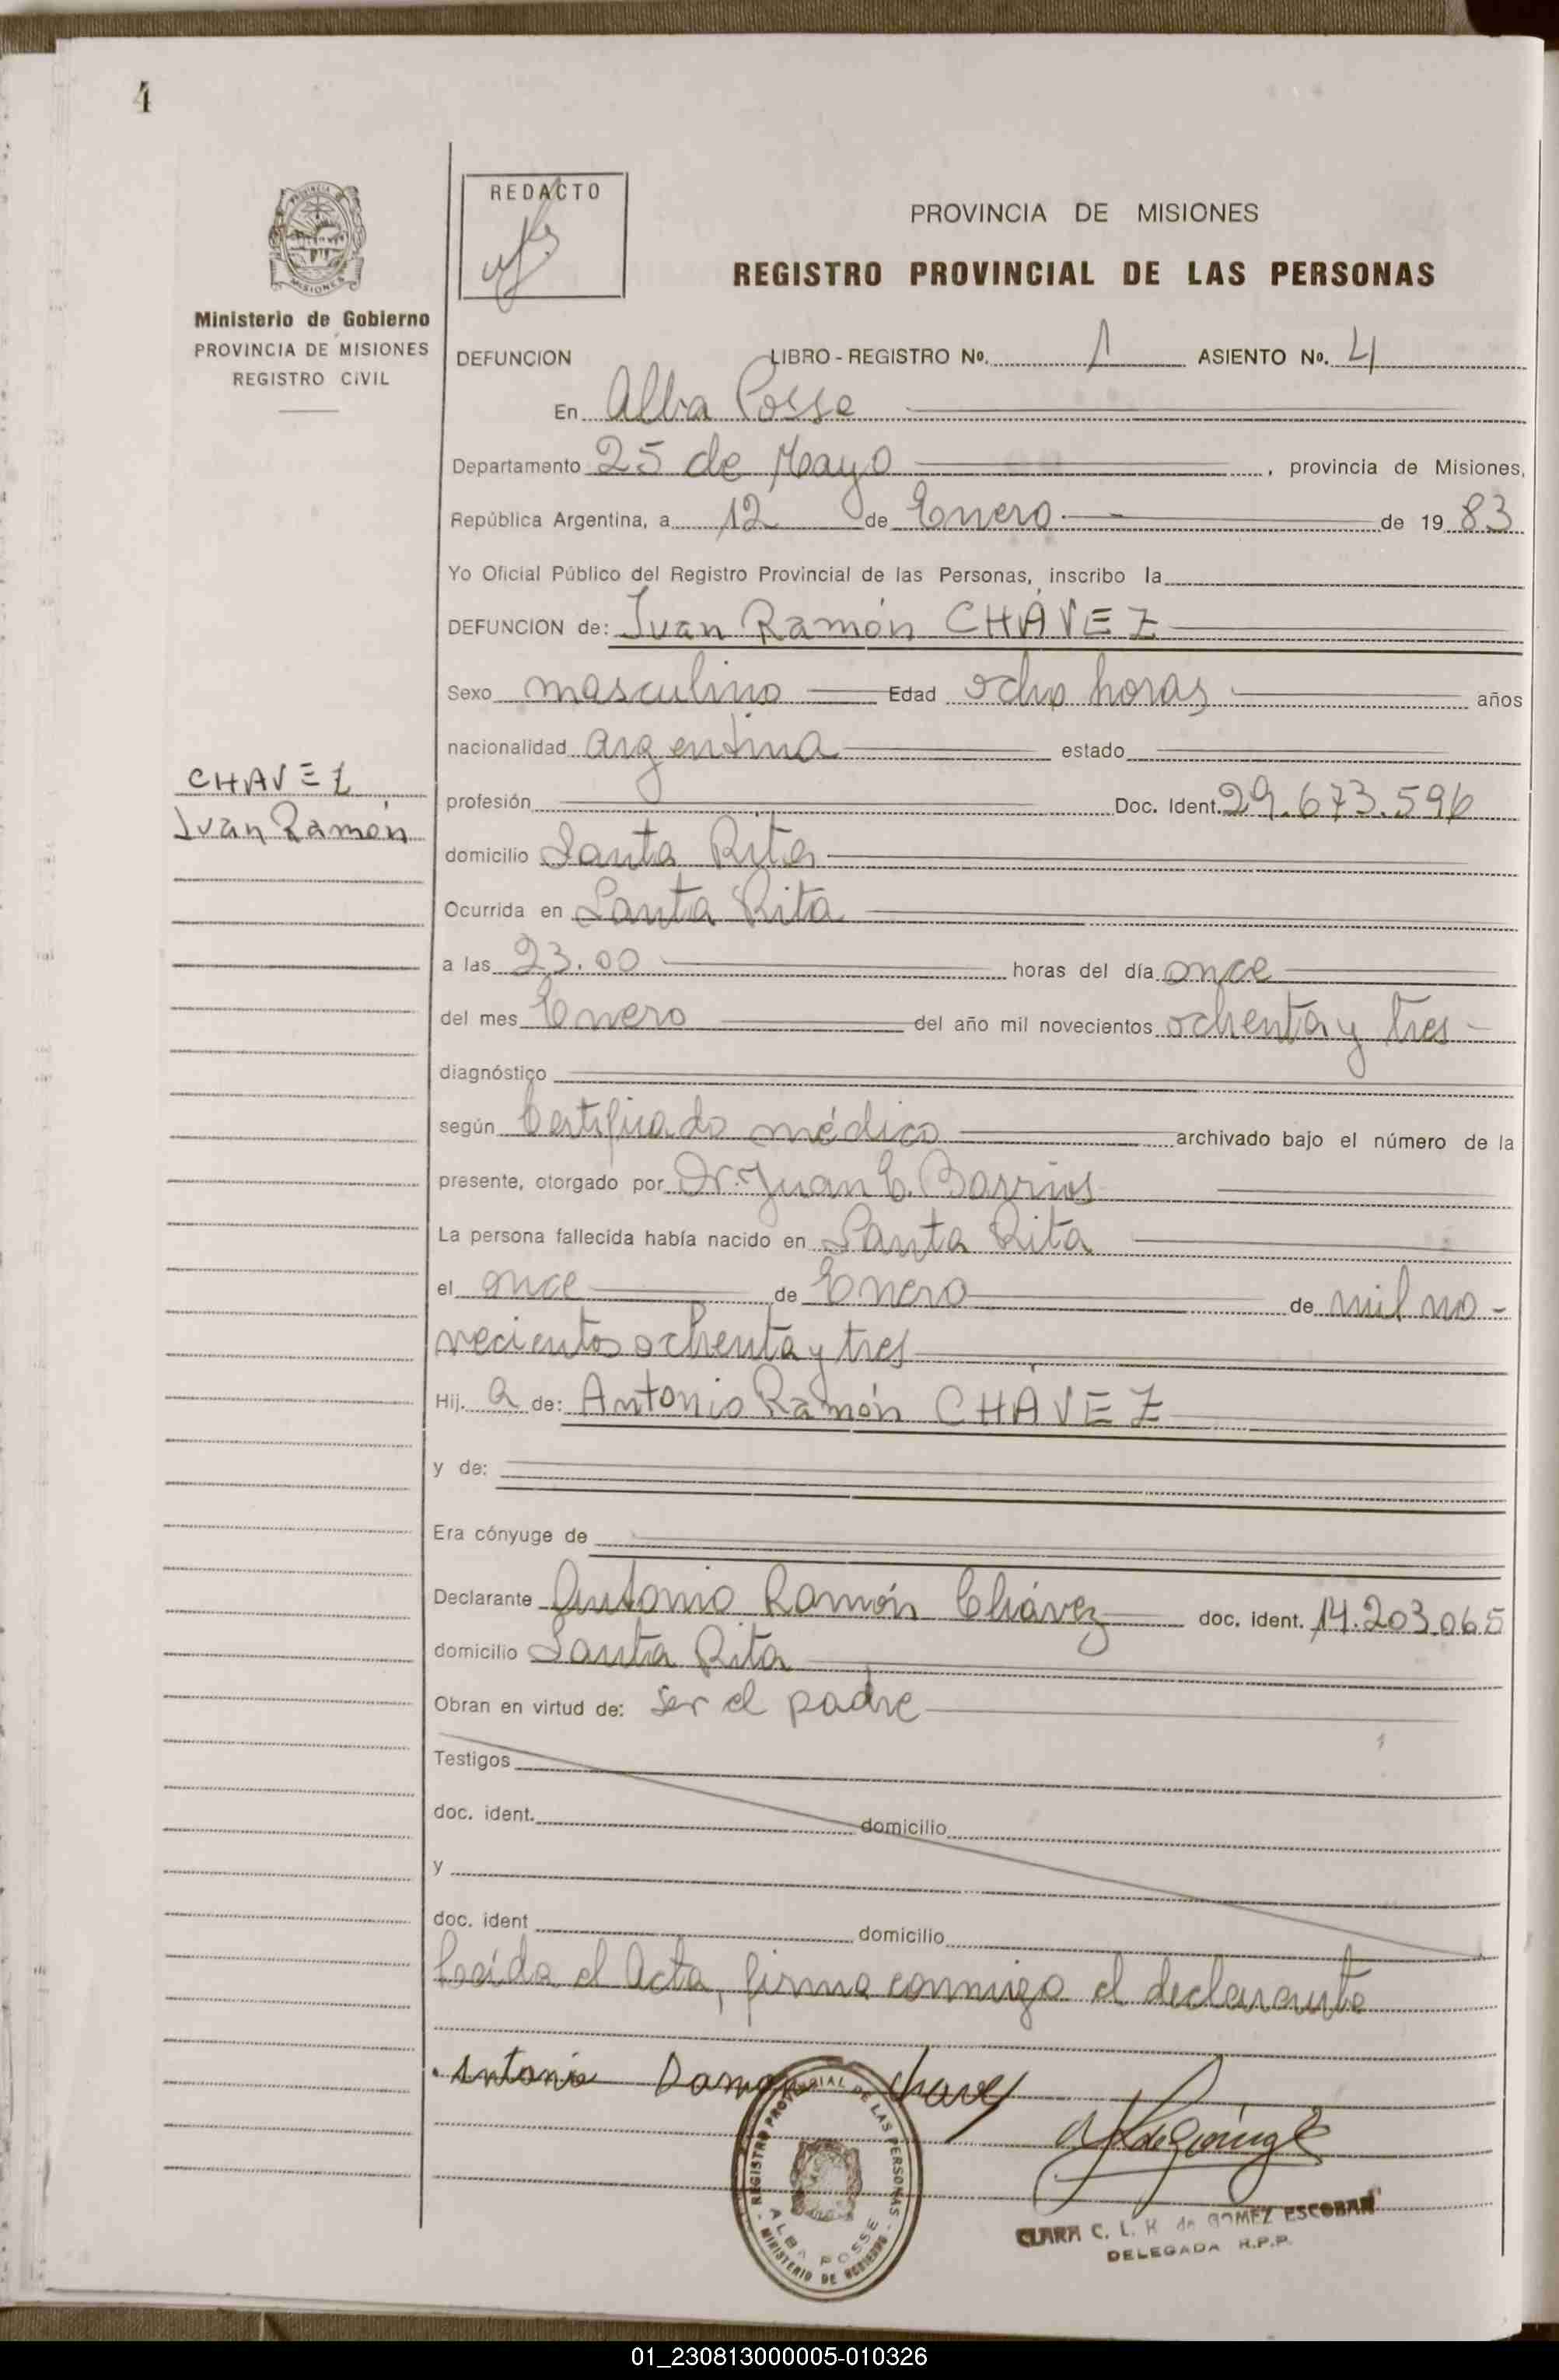 4
REDACTO
PROVINCIA DE MISIONES
REGISTRO PROVINCIAL DE LAS PERSONAS
MISIONES
Ministerio de Gobierno
PROVINCIA DE MISIONES
REGISTRO CIVIL
DEFUNCION LIBRO - REGISTRO No. 1 ASIENTO No. 4
En Alba Posse
Departamento 25 de Mayo, provincia de Misiones,
República Argentina, a 12 de Enero de 19 83
Yo Oficial Público del Registro Provincial de las Personas, inscribo la
DEFUNCION de: Juan Ramón CHÁVEZ
Sexo masculino Edad ocho horas años
nacionalidad argentina estado
CHAVEZ
Juan Ramón
profesión Doc. Ident. 29.673.596
domicilio Santa Rita
Ocurrida en Santa Rita
a las 23.00 horas del día once
del mes Enero del año mil novecientos ochenta y tres
diagnóstico
según Certificado médico archivado bajo el número de la
presente, otorgado por Dr. Juan C. Barrios
La persona fallecida había nacido en Santa Rita
el once de Enero de mil no-
vecientos ochenta y tres
Hij. a de: Antonio Ramón CHÁVEZ
y de:
Era cónyuge de
Declarante Antonio Ramón Chávez doc. ident. 14.203.065
domicilio Santa Rita
Obran en virtud de: ser el padre
Testigos
doc. ident. domicilio
y
doc. ident domicilio
Leída el Acta, firma conmigo el declarante
Antonio Ramon Chavez
REGISTRO PROVINCIAL DE LAS PERSONAS
ALBA POSSE
MINISTERIO DE GOBIERNO
CLARA C. L. K de GOMEZ ESCOBAR
DELEGADA R.P.P.
01_230813000005-010326